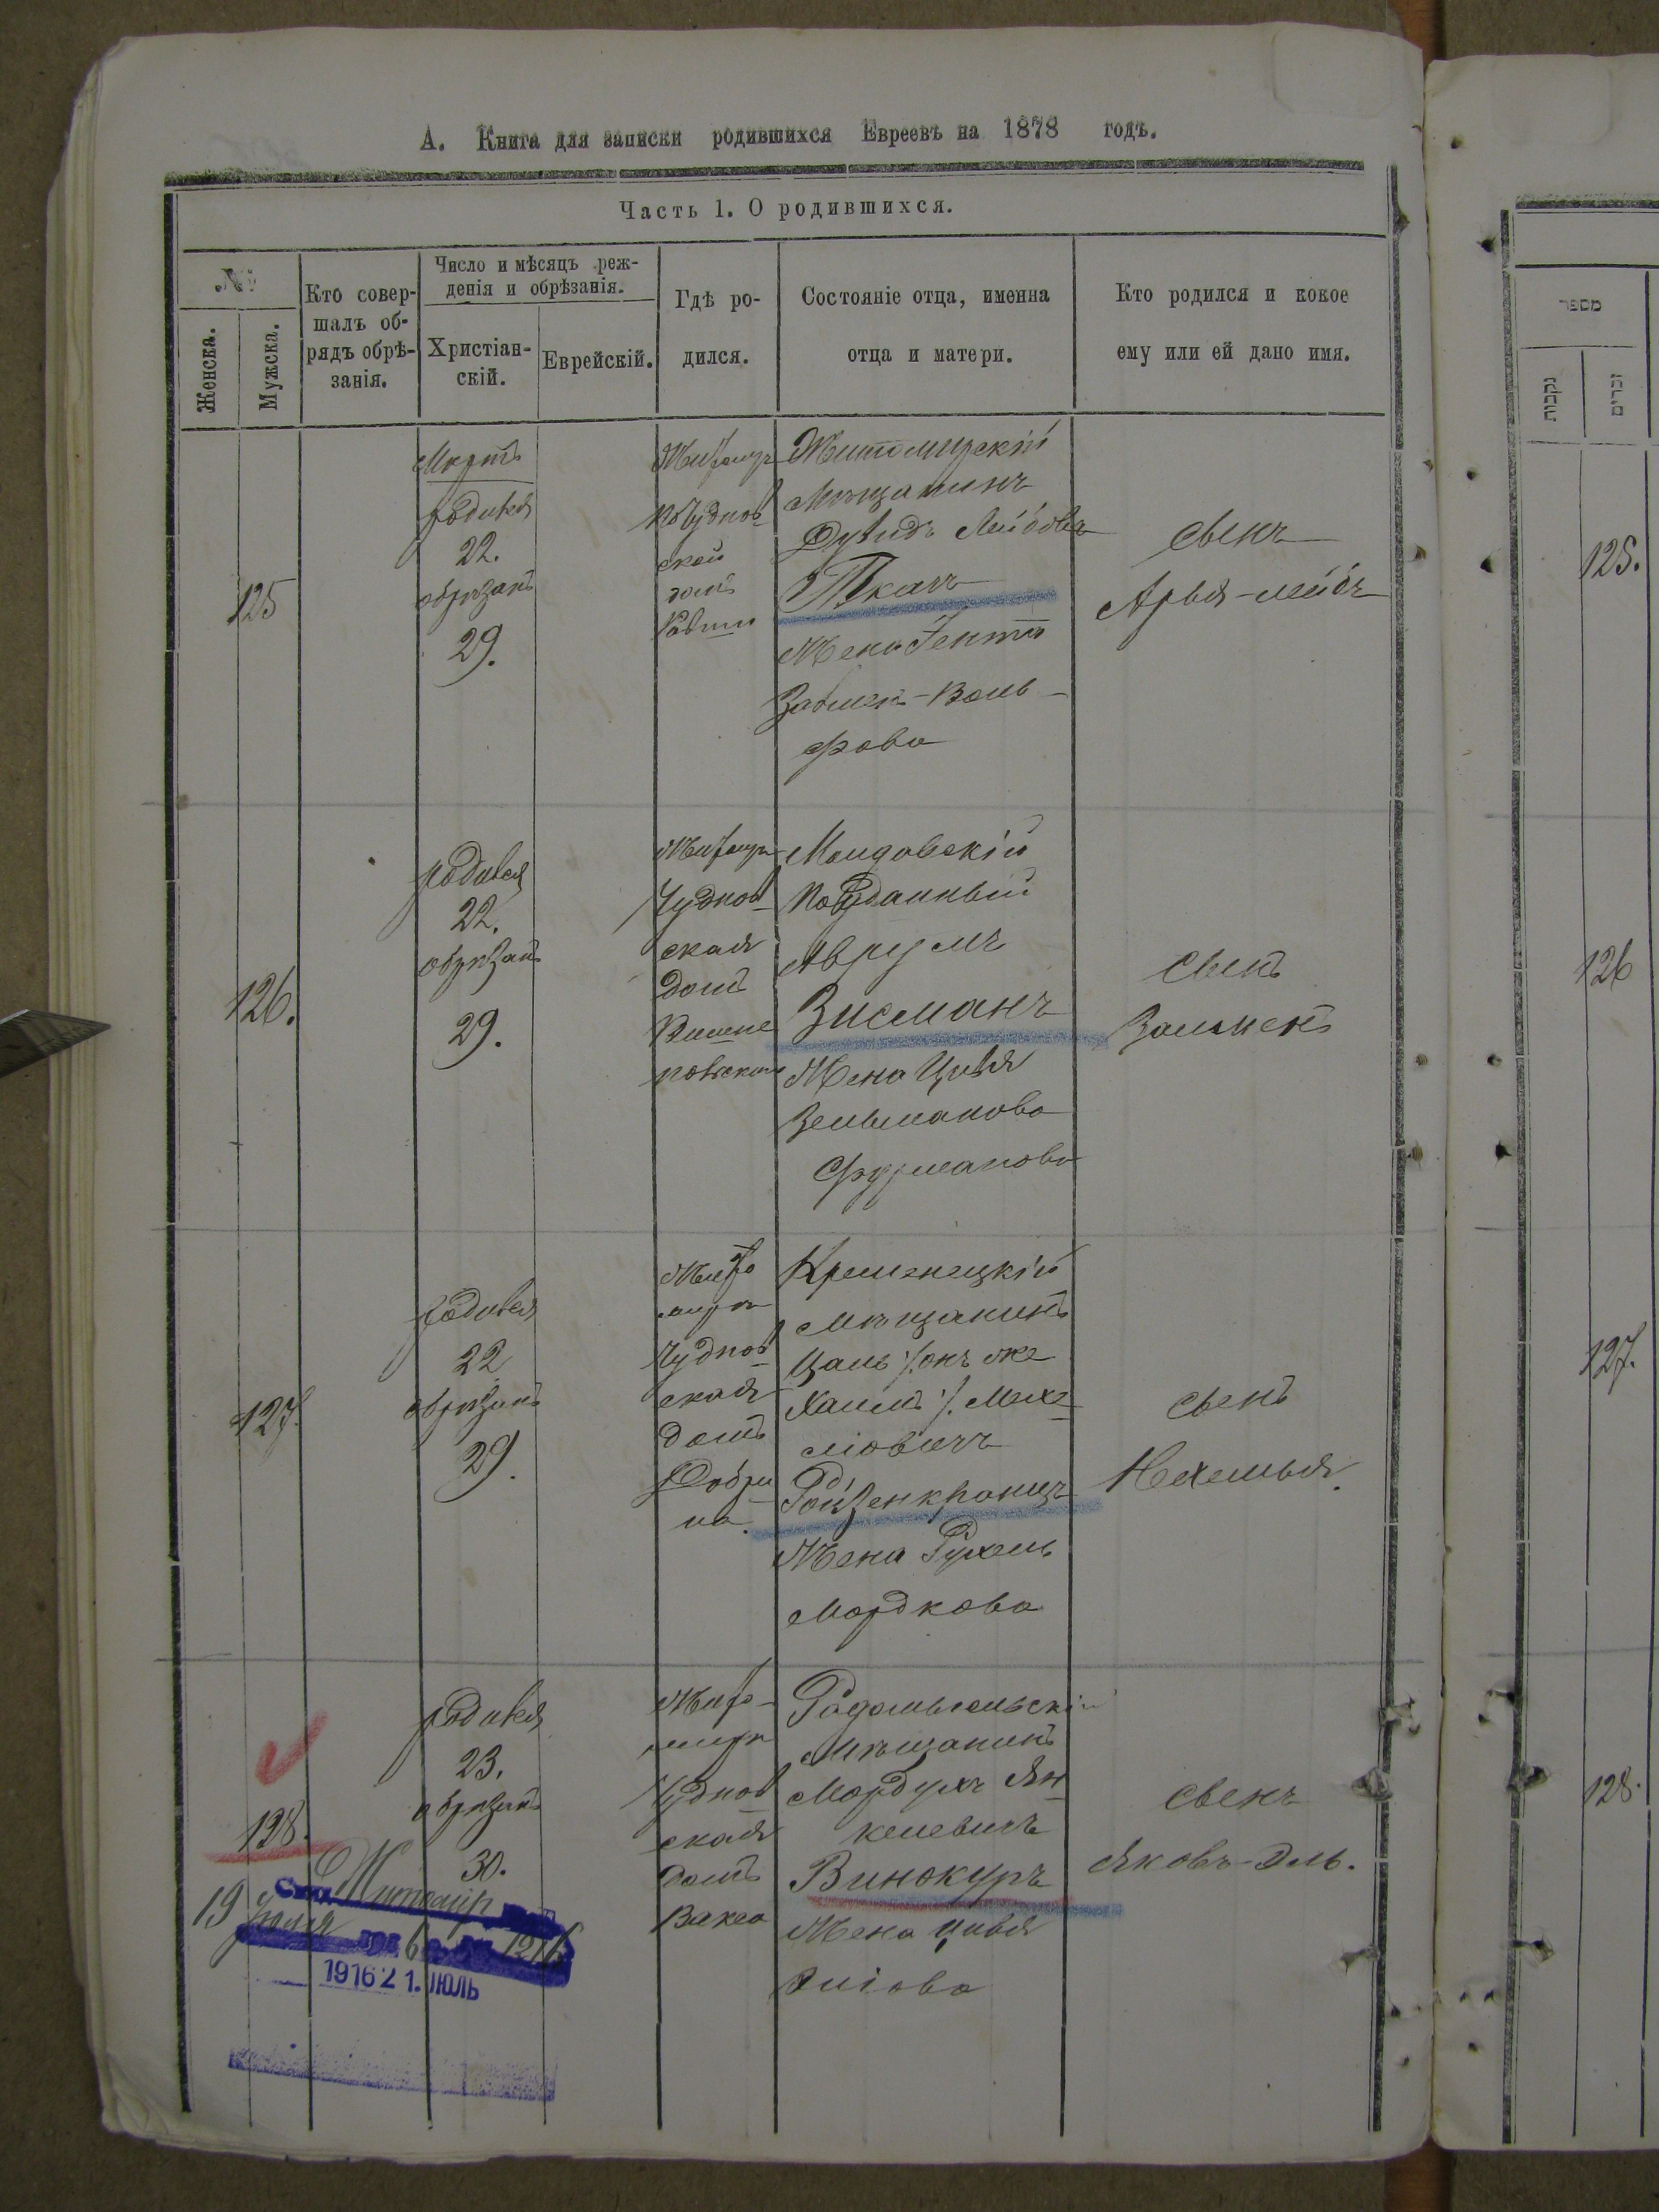 А. Книга для записки родившихся Евреевъ на 1878 годъ.
Часть 1. О родившихся.
№
Женска.
Мужска.
Кто совер-
шалъ об-
рядъ обрѣ-
занія.
Число и мѣсяцъ реж-
денія и обрѣзанія.
Христіан-
скій.
Еврейскій.
Гдѣ ро-
дился.
Состояніе отца, именна
отца и матери.
Кто родился и кокое
ему или ей дано имя.
125
Мартъ
родився
22.
обрѣзанъ
29.
Житомир
Чуднов
ской
домъ
Житомирскій
Мѣщанинъ
Дувидъ Лейбовъ
Ткачъ
Жена Гентя
Вольфова
сынъ
Арья-лейбъ
126.
родився
22.
обрѣзанъ
29.
Житомир
Чуднов
ская
домъ
Подданный
Аврумъ
Зисманъ
Жена Цивья
Зельманова
Фурманова
сынъ
Залменъ
127.
родився
22
обрѣзанъ
29.
Жито
миръ
Чуднов
ская
домъ
Добри
на.
Кременецкій
Мѣщанинъ
Цаль /. онъ же
Хаимъ /. Мехе
ліовичъ
Ройзенкранцъ
Жена Рухель
Мордкова
сынъ
Нехемья.
128.
родився
23.
обрѣзанъ
30.
Жито-
миръ
Чуднов
ская
домъ
Вакса
Радомысльскій
Мѣщанинъ
Мордухъ Ян
келевичъ
Винокуръ
Жена Цивья
Эліова
сынъ
Яковъ-Эль.
19
1916
1916 21. ІЮЛЬ
מספר
נקבות
זכרים
125.
126
127.
128.